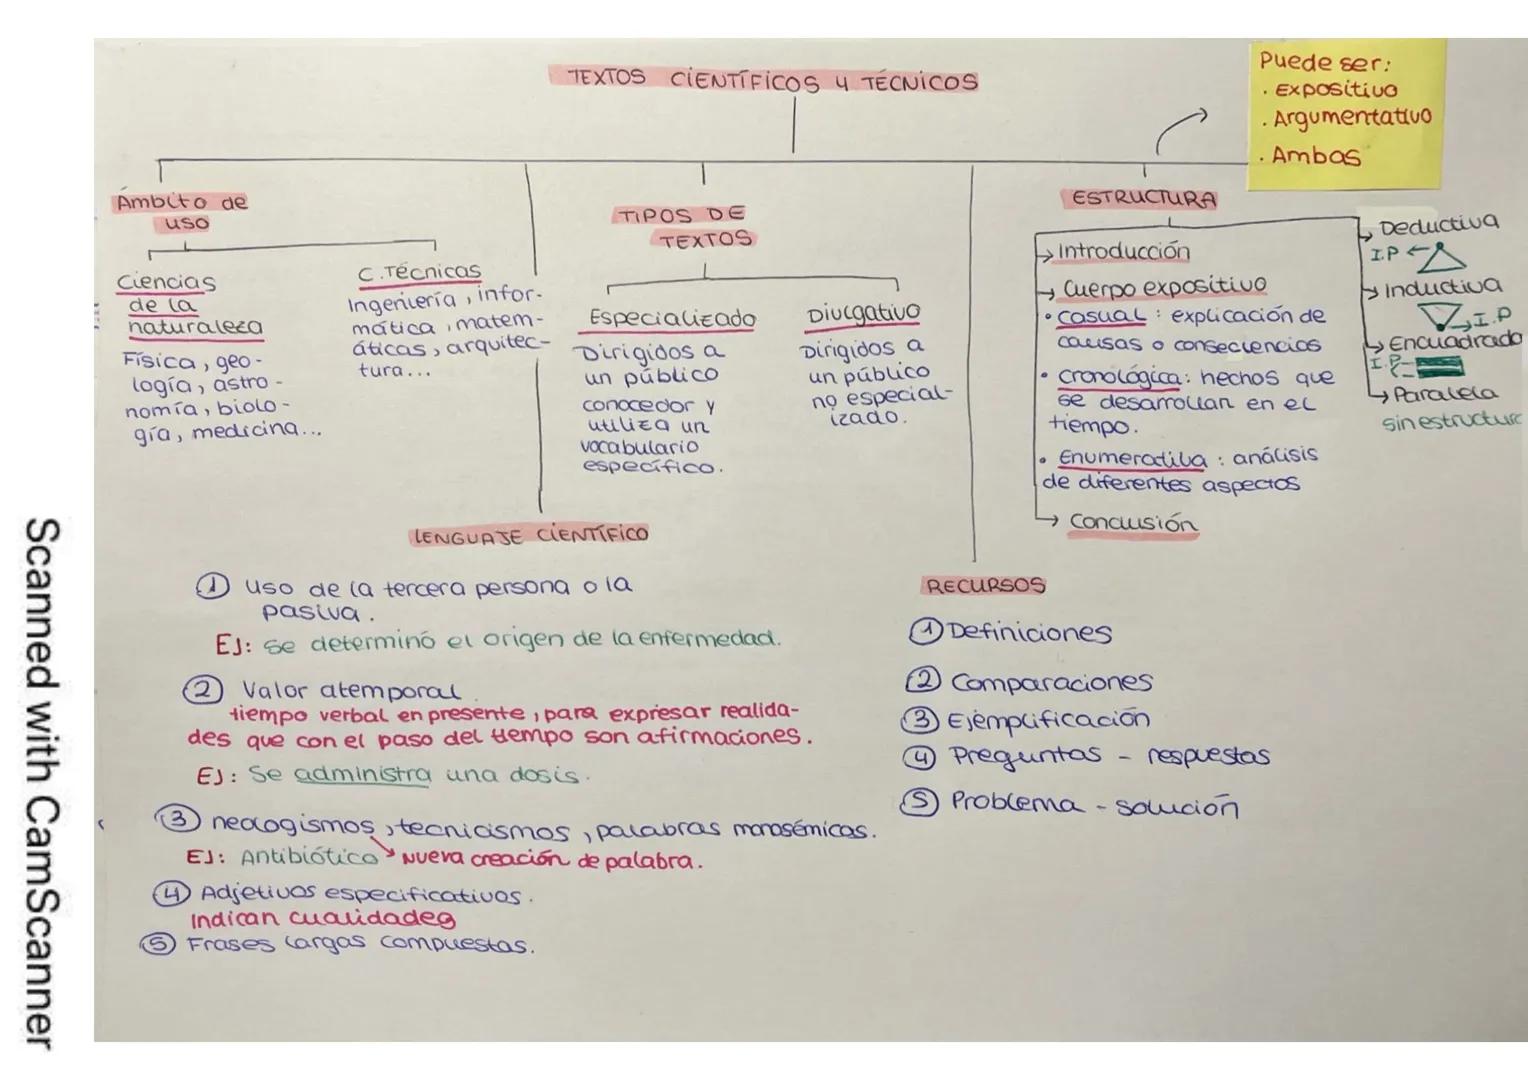 TEXTOS CIENTÍFICOS Y TÉCNICOS
Puede ser:
· Expositivo
· Argumentativo
· Ambas
Ámbito de
uso
Ciencias
de la
naturaleza
Física, geo-
logía, astro-
nomía, biolo-
gía, medicina...
C. Técnicas
Ingeniería, infor-
mática, matem-
áticas, arquitec-
tura...
TIPOS DE
TEXTOS
Especializado
Dirigidos a
un público
conocedor y
utiliza un
vocabulario
específico.
Divulgativo
Dirigidos a
un público
no especial-
izado.
ESTRUCTURA
→ Introducción
→ Cuerpo expositivo
• Casual: explicación de
causas o consecuencias
• Cronológica: hechos que
se desarrollan en el
tiempo.
• Enumerativa: análisis
de diferentes aspectos
→ Conclusión
→ Deductiva
I.P ←
→ Inductiva
→ I.P
→ Encuadrado
I.P
→ Paralela
sin estructura
LENGUAJE CIENTÍFICO
① Uso de la tercera persona o la
pasiva.
EJ: Se determinó el origen de la enfermedad.
② Valor atemporal
tiempo verbal en presente, para expresar realida-
des que con el paso del tiempo son afirmaciones.
EJ: Se administra una dosis.
③ neologismos, tecnicismos, palabras monosémicas.
EJ: Antibiótico → Nueva creación de palabra.
④ Adjetivos especificativos.
Indican cualidades
⑤ Frases largas compuestas.
RECURSOS
① Definiciones
② Comparaciones
③ Ejemplificación
④ Preguntas - respuestas
⑤ Problema - solución
Scanned with CamScanner